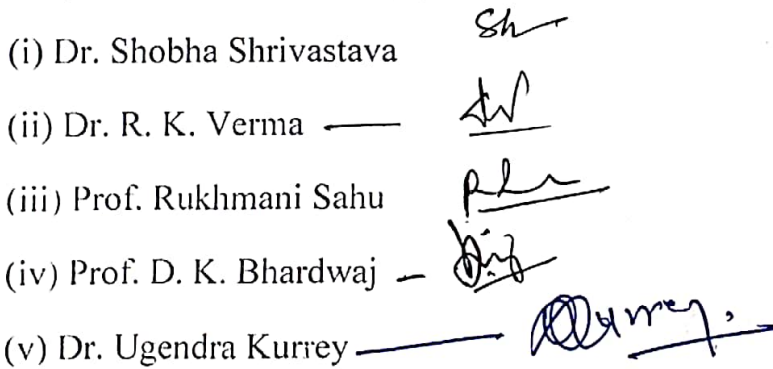 (i) Dr. Shobha Shrivastava Sh
(ii) Dr. R. K. Verma
(iii) Prof. Rukhmani Sahu
(iv) Prof. D. K. Bhardwaj
(v) Dr. Ugendra Kurrey